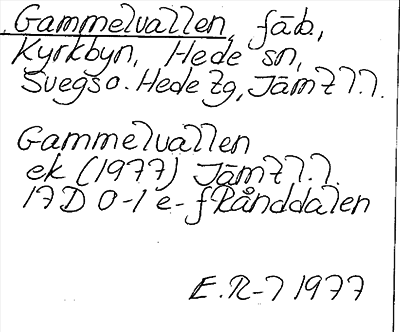 Gammelvallen, fäb,
Kyrkbyn, Hede sn,
Svegs o. Hede tg, Jämt l.
Gammelvallen
ek (1977) Jämt l.
17D 0-1 e-f Rånddalen
E.R-7 1977